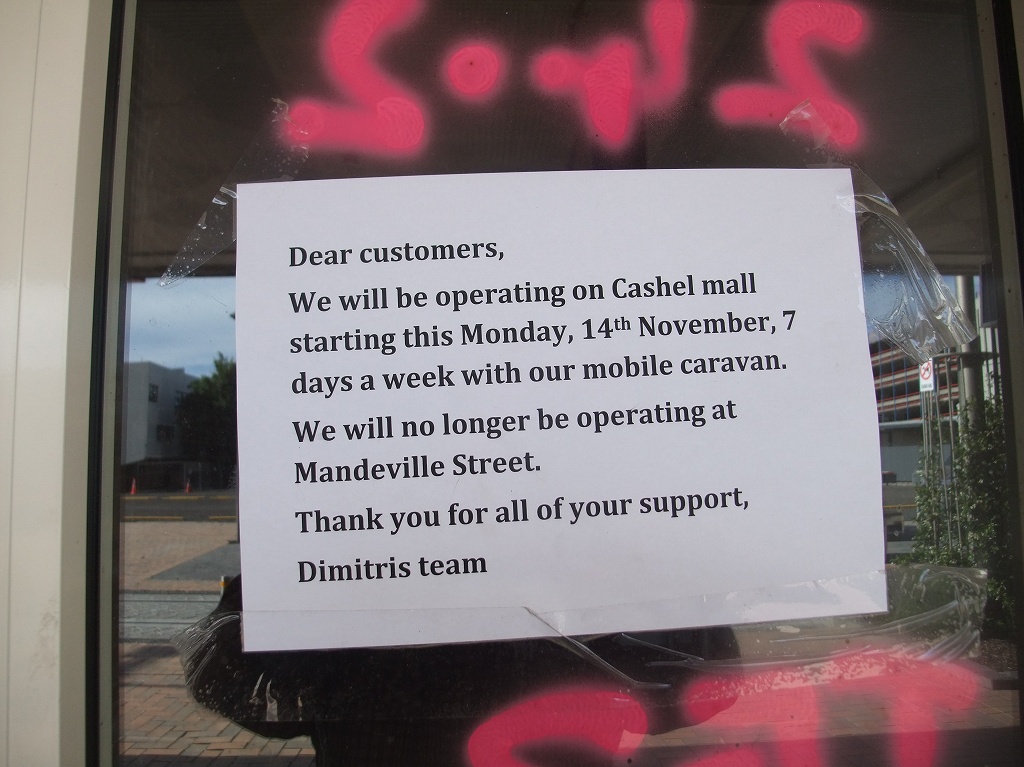 Dear customers,
We will be operating on Cashel mall
starting this Monday, 14th November, 7
days a week with our mobile caravan.
We will no longer be operating at
Mandeville Street.
Thank you for all of your support,
Dimitris team